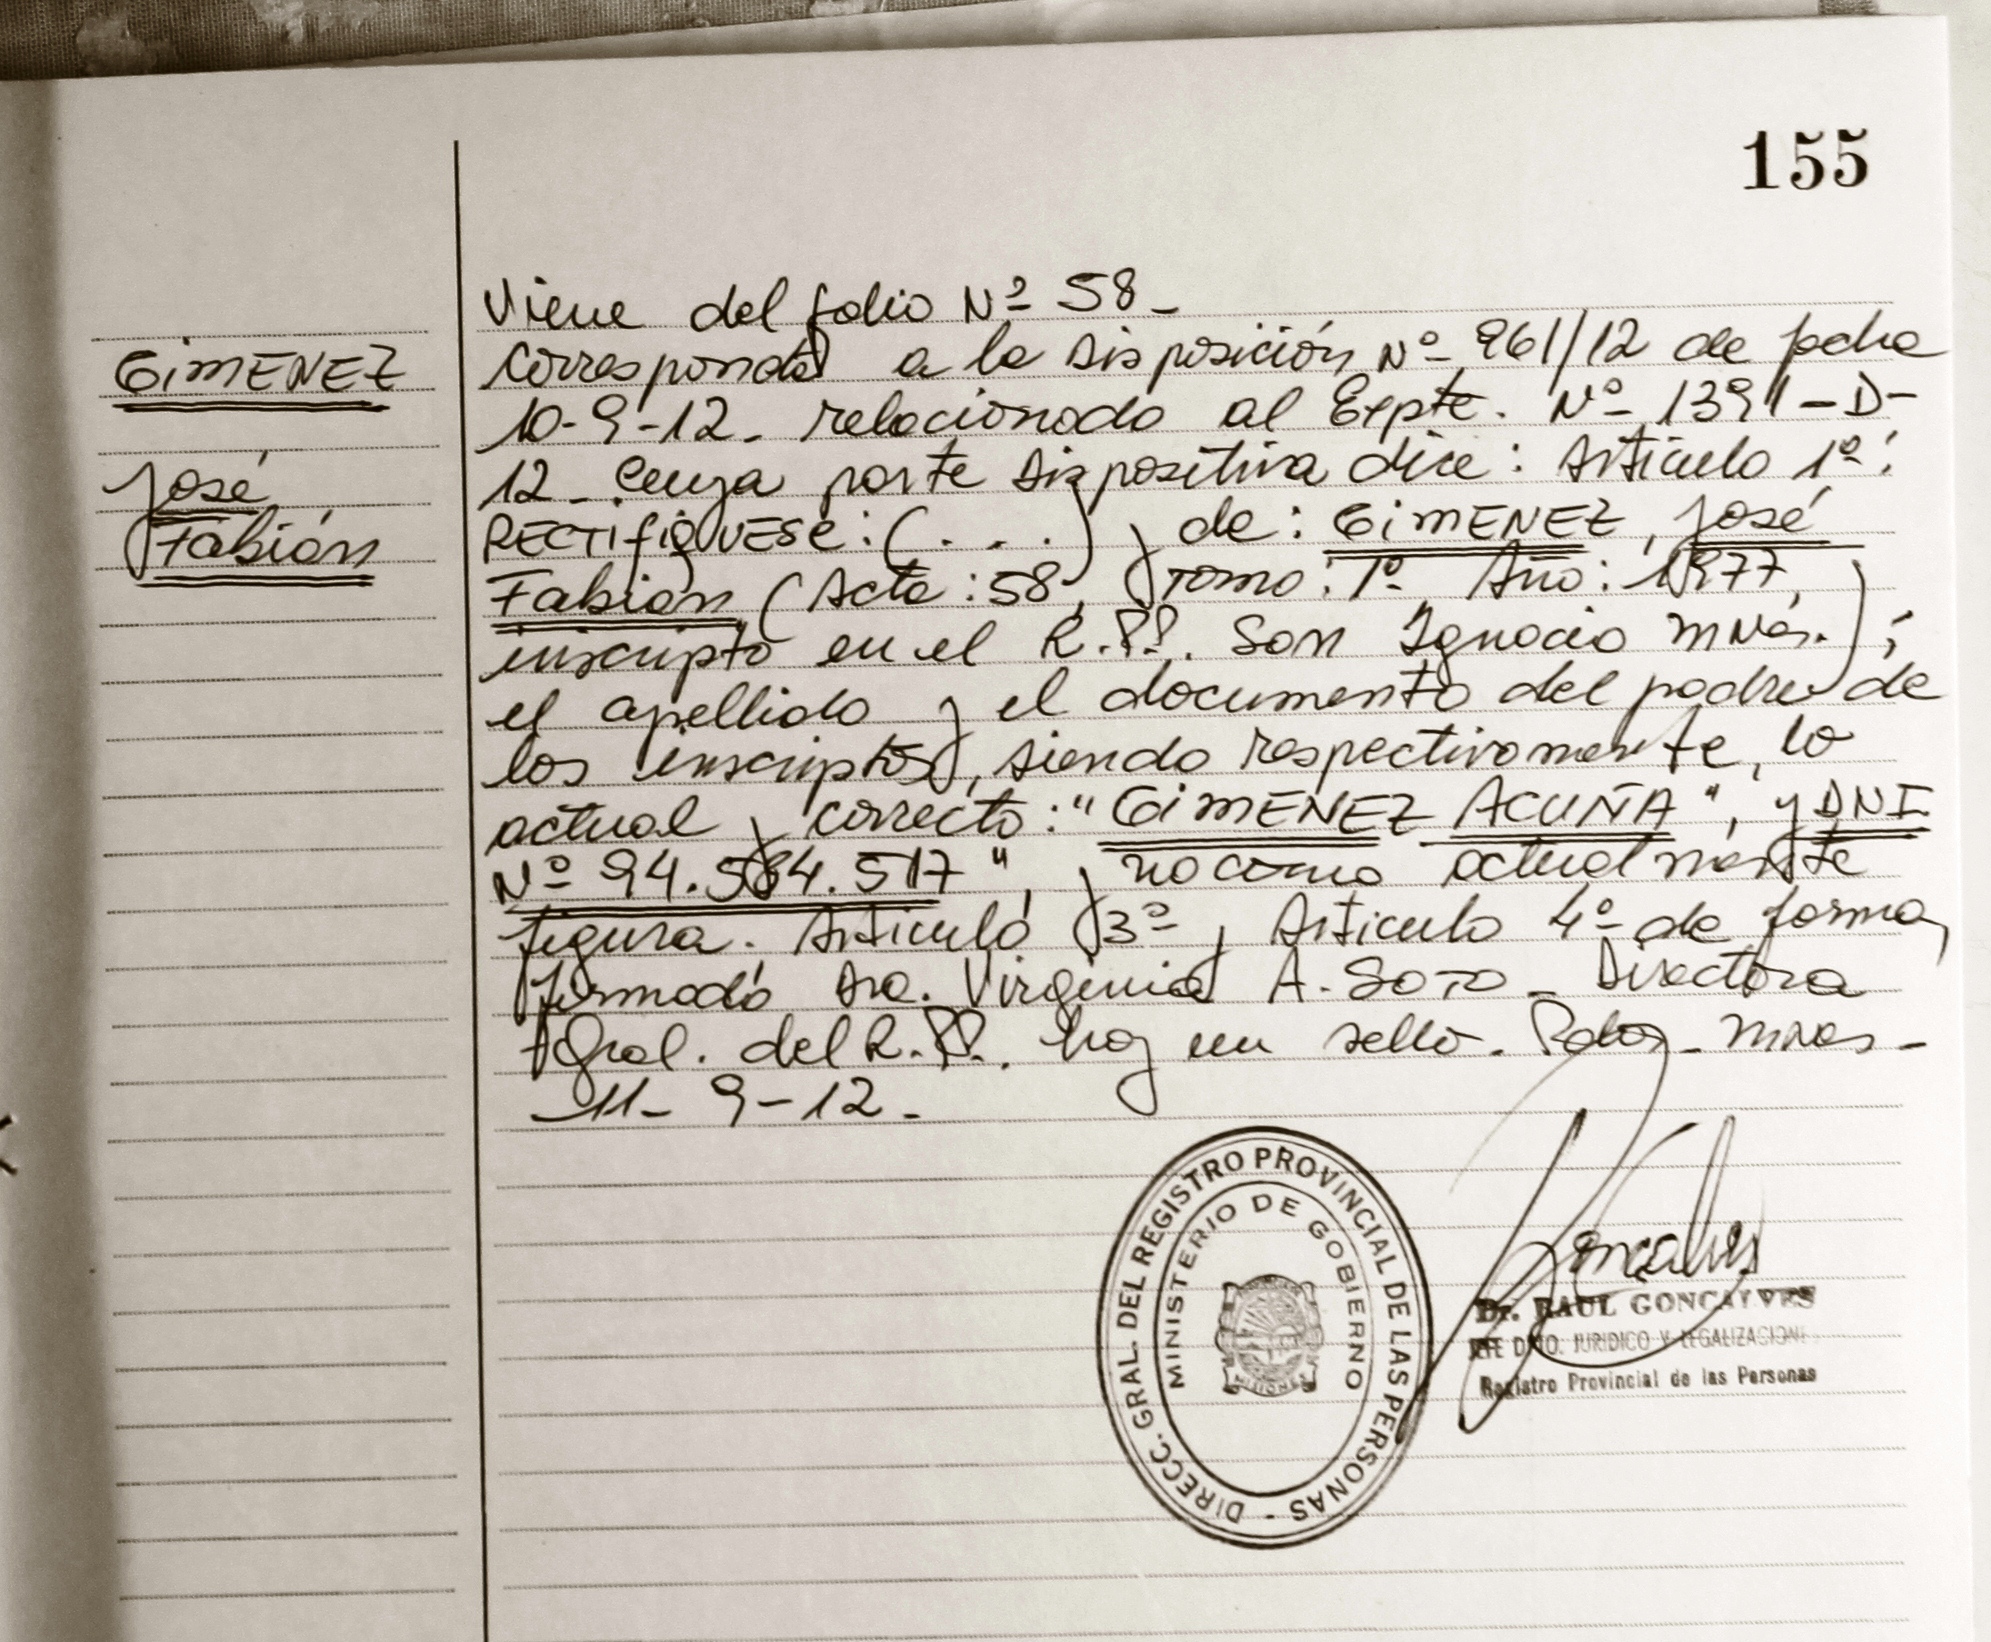 155
GIMENEZ
José
Fabián
Viene del folio Nº 58-
corresponde a la disposición Nº 961/12 de fecha
10-9-12- relacionado al Expte. Nº 1391-D-
12- Cuya parte dispositiva dice: Artículo 1º:
RECTIFIQUESE: (...) y de: GIMENEZ, José
Fabián (Acta: 58, Tomo: 1º Año: 1977,
inscripto en el R.PP. San Ignacio Mnes.);
el apellido y el documento del padre de
los inscriptos, siendo respectivamente, lo
actual y correcto: "GIMENEZ ACUÑA", y DNI
Nº 94.584.517", y no como actualmente
figura. Artículo 3º, Artículo 4º de forma,
firmado Dra. Virginia A. SOTO- Directora
Gral. del R.PP. hay un sello. Pdas- Mnes-
11-9-12-
DIRECC. GRAL. DEL REGISTRO PROVINCIAL DE LAS PERSONAS -
MINISTERIO DE GOBIERNO
MISIONES
Goncalves
Dr. RAUL GONCALVES
JEFE DPTO. JURIDICO Y LEGALIZACIONE
Registro Provincial de las Personas